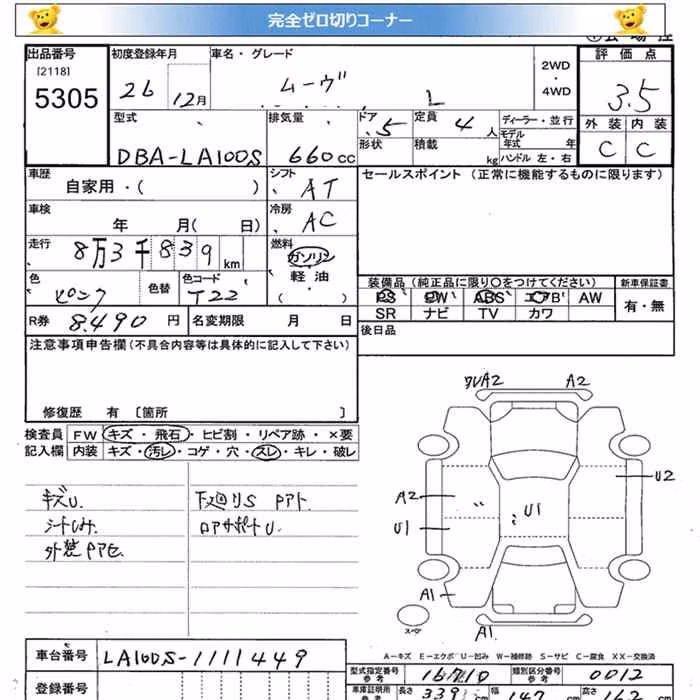 完全ゼロ切りコーナー
出品番号 初度登録年月 車名・グレード 2WD・4WD 評価点
[2118]
5305 26 12月 ムーヴ L 3.5
型式 排気量 ドア 5 定員 4 人 ディーラー・並行 外装 内装
DBA-LA100S 660cc 形状 積載 kg モデル年式 年 ハンドル 左・右 C C
車歴 自家用・( ) シフト AT セールスポイント (正常に機能するものに限ります)
車検 年 月( 日) 冷房 AC
走行 8万3千839km 燃料 ガソリン 軽油 ・ ( )
色 ピンク 色替 色コード T22 装備品 (純正品に限り〇をつけてください) 新車保証書
PS PW ABS エアB AW 有・無
SR ナビ TV カワ
R券 8,490 円 名変期限 月 日 後日品
注意事項申告欄 (不具合内容等は具体的に記入して下さい)
修復歴 有 [箇所 ]
検査員 FW キズ・飛石・ヒビ割・リペア跡・×要
記入欄 内装 キズ・汚レ・コゲ・穴・スレ・キレ・破レ
キズU. 下廻りS Pアト.
シートしみ. ロアサポートU.
外装Pアセ.
ワレA2 A2
U2
A2
U1 U1
A1
スペア
A1
A-キズ E-エクボ U-凹み W-補修跡 S-サビ C-腐食 XX-交換済
車台番号 LA100S-1111449
型式指定番号 参考 16710 類別区分番号 参考 0012
登録番号 車庫証明所 参考 長さ 339 cm 幅 147 cm 高さ 162 cm